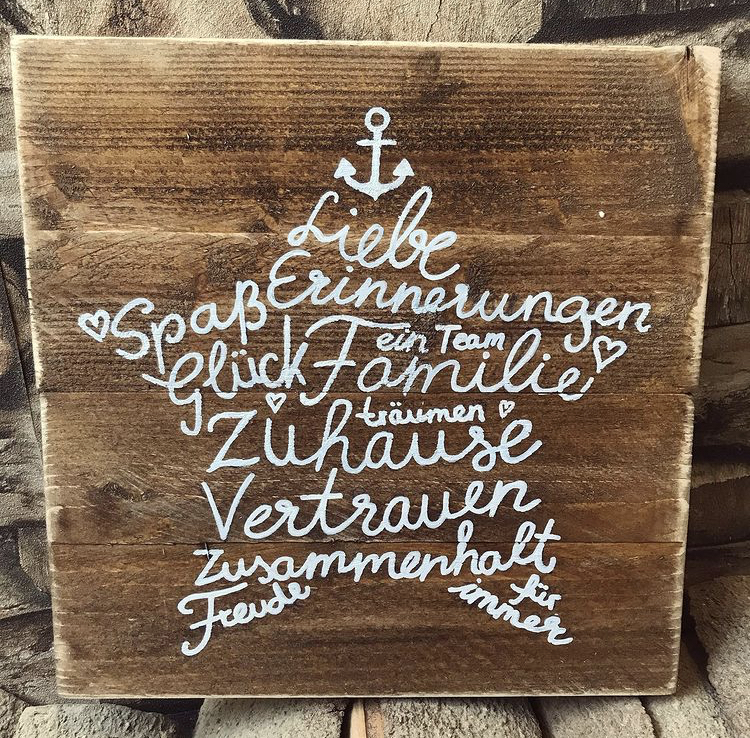 Liebe
Spaß Erinnerungen
ein Team
Glück Familie
träumen
Zuhause
Vertrauen
Zusammenhalt
Freude für
immer